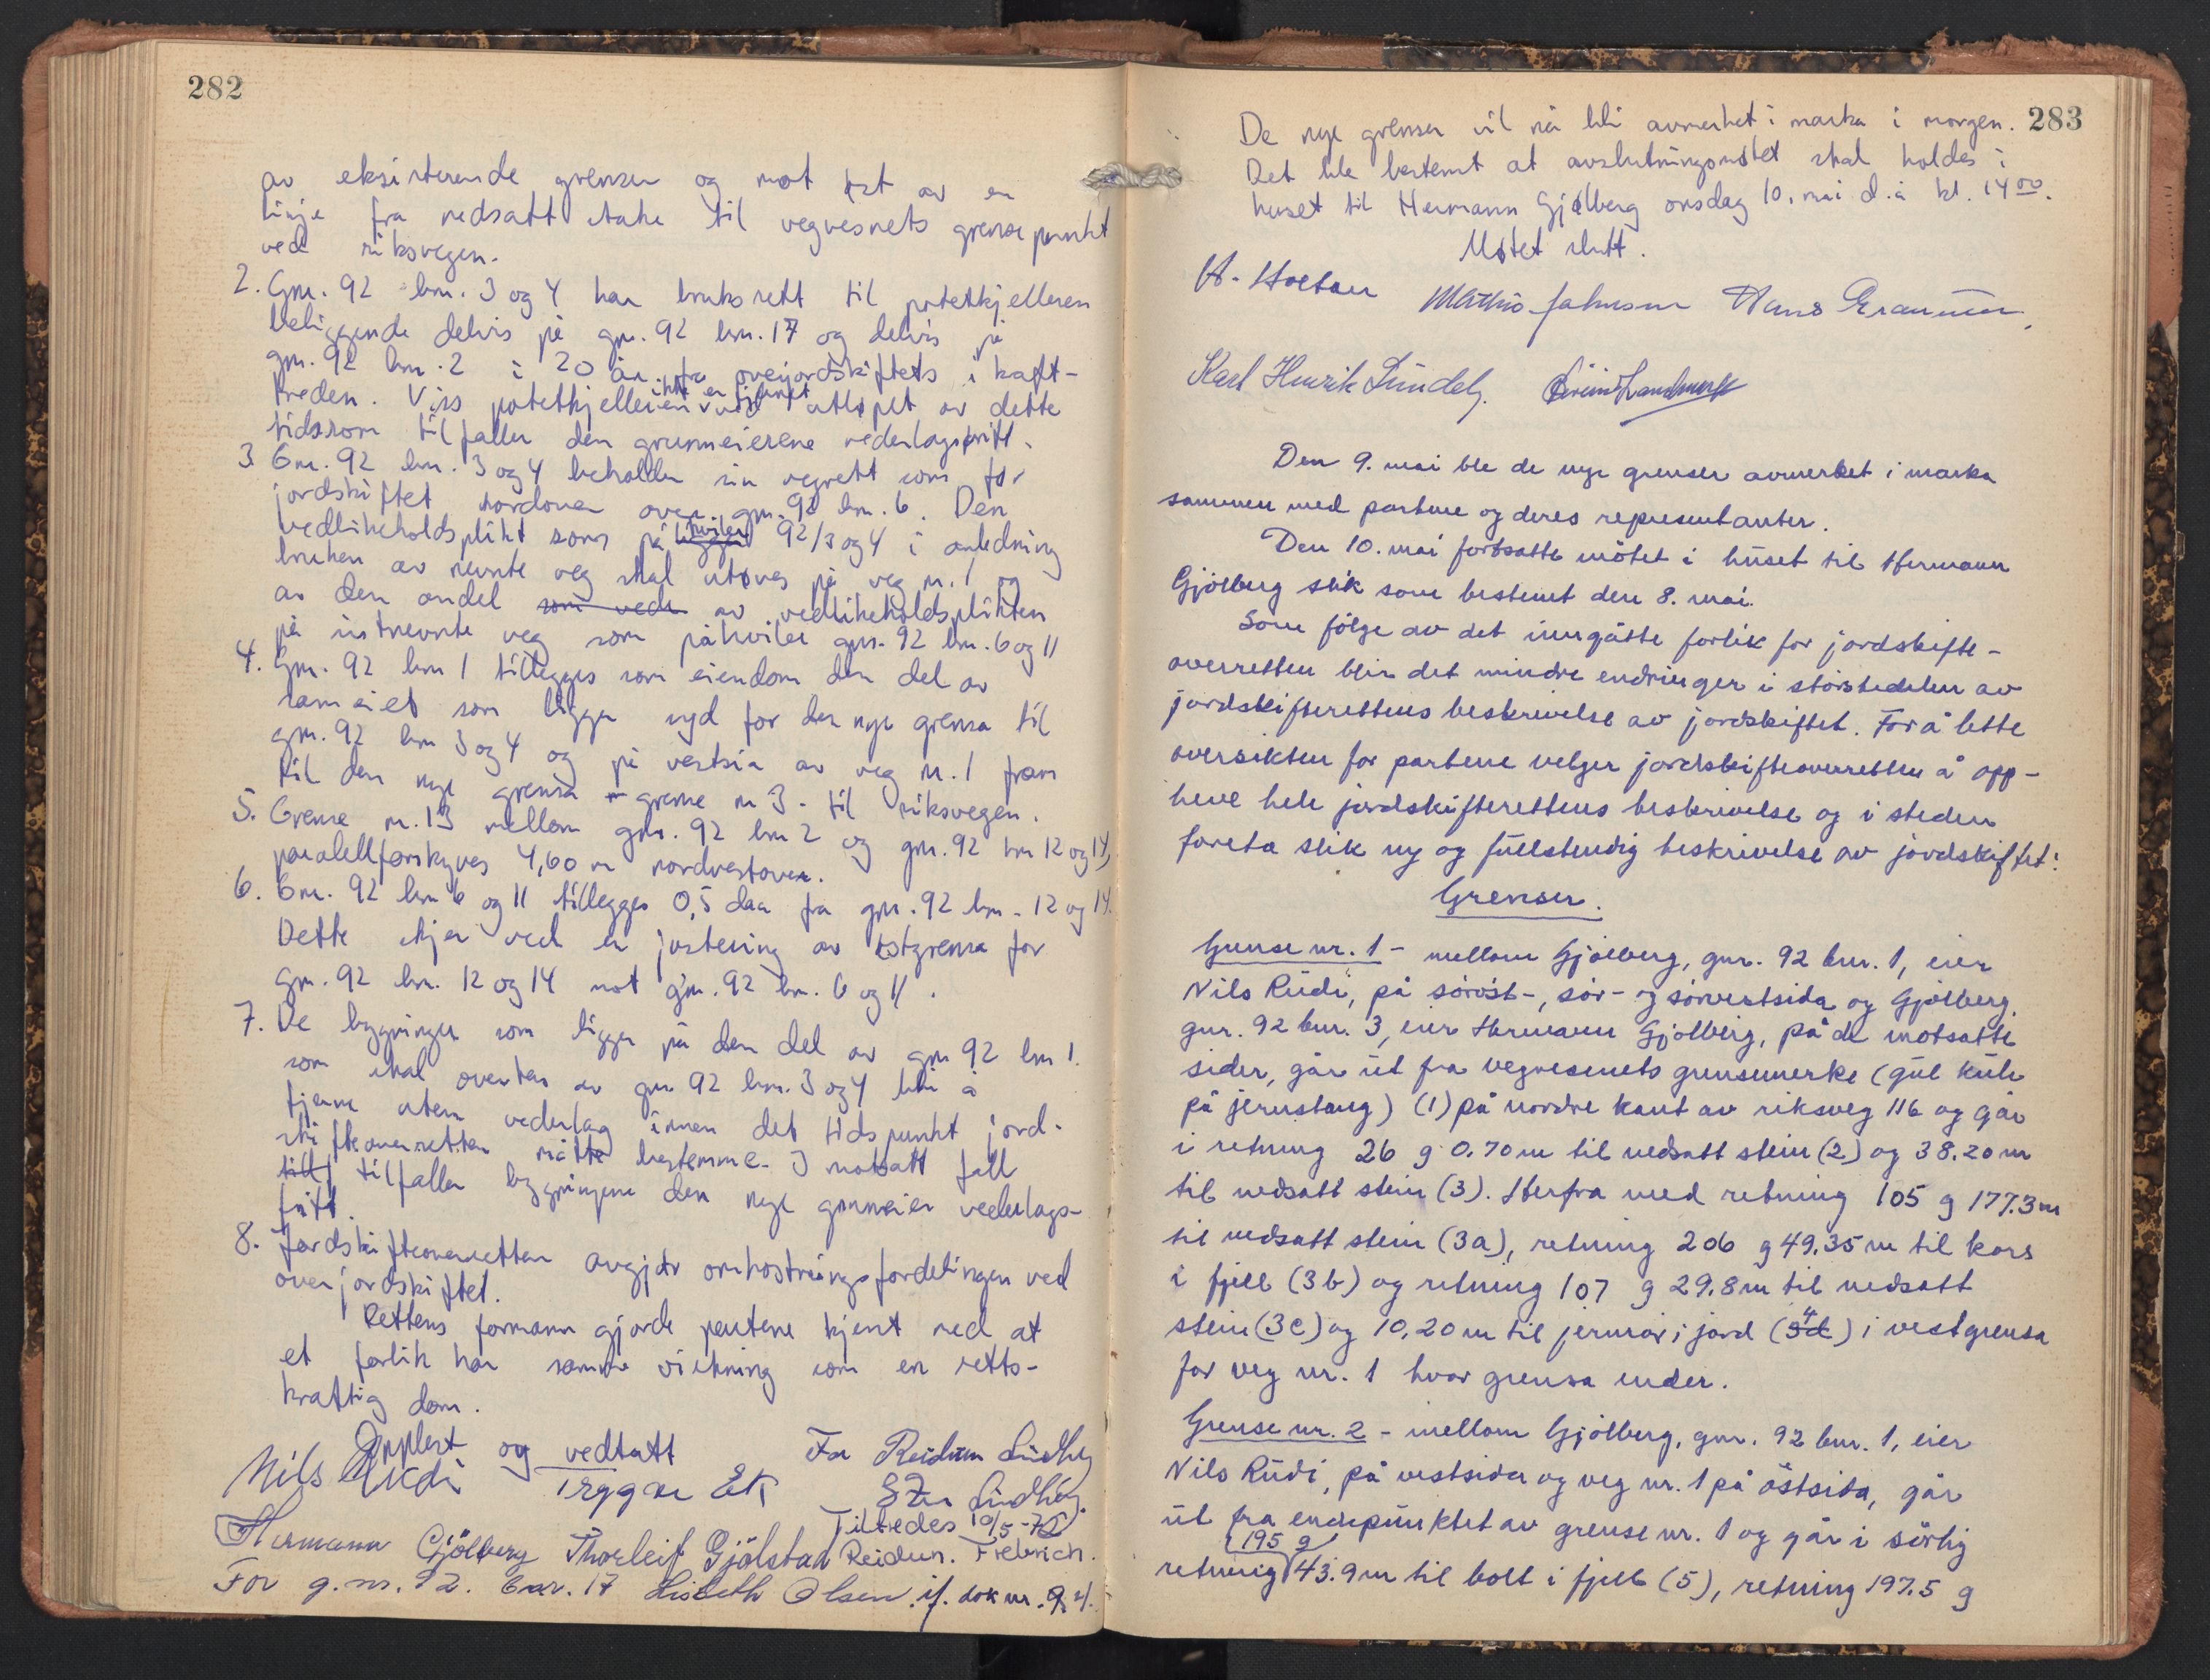 282
av eksisterende grenser og mot øst av en
linje fra nedsatt stake til vegvesnets grensepunkt
ved riksvegen.
2. Gnr. 92 bnr. 3 og 4 har bruksrett til potetkjelleren
beliggende delvis på gnr. 92 bnr. 17 og delvis på
gnr. 92 bnr. 2 i 20 år fra overjordskiftets i kaft-
treden. Viss potetkjelleren ikke er fjernet ved utløpet av dette
tidsrom tilfaller den grunneierene vederlagsfritt.
3. Gnr. 92 bnr. 3 og 4 beholder sin vegrett som før
jordskiftet nordover over gnr. 92 bnr. 6. Den
vedlikeholdsplikt som på ligger hviler 92/3 og 4 i anledning
bruken av nevnte veg skal utøves på veg nr. 1 og
av den andel som ved av vedlikeholdsplikten
på sistnevnte veg som påhviler gnr. 92 bnr. 6 og 11
4. Gnr. 92 bnr 1 tillegges som eiendom den del av
sameiet som ligger syd for den nye grensa til
gnr. 92 bnr 3 og 4 og på vestsia av veg nr. 1 fram
til den nye grensa - grense nr 3 - til riksvegen.
5. Grense nr. 13 mellom gnr. 92 bnr 2 og gnr. 92 bnr 12 og 14,
paralellforskyves 4,60 m nordvestover.
6. Gnr. 92 bnr 6 og 11 tillegges 0,5 daa fra gnr. 92 bnr. 12 og 14.
Dette skjer ved en justering av østgrensa for
gnr. 92 bnr. 12 og 14 mot gnr. 92 bnr. 6 og 11.
7. De bygninger som ligger på den del av gnr 92 bnr 1.
som skal overtas av gnr 92 bnr. 3 og 4 blir å
fjerne uten vederlag innen det tidspunkt jord-
skifteoverretten måtte bestemme. I motsatt fall
tilf tilfaller bygningene den nye grunneier vederlags-
fritt.
8. Jordskifteoverretten avgjør omkostningsfordelingen ved
overjordskiftet.
Rettens formann gjorde partene kjent med at
et forlik har samme virkning som en retts-
kraftig dom.
Opplest og vedtatt
For Reidun Lindhøy
Nils Rudi Trygve Ek
Lindhøy.
Tiltredes 10/5-75
Hermann Gjölberg Thorleif Gjølstad Reidun. Fiebrich.
For g.nr. 92. bnr. 17 Lisbeth Olsen. if. dok nr. 94.
283
De nye grenser vil nå bli avmerket i marka i morgen.
Det ble bestemt at avslutningsmøtet skal holdes i
huset til Hermann Gjølberg onsdag 10. mai d.å kl. 14 00.
Møtet slutt.
A. Holtan Mathis Johnsen Hans
Karl Henrik Lundeby. Eivind Landmark
Den 9. mai ble de nye grenser avmerket i marka
sammen med partene og deres representanter.
Den 10. mai fortsatte mötet i huset til Hermann
Gjölberg slik som bestemt den 8. mai.
Som følge av det inngåtte forlik for jordskifte-
overretten blir det mindre endringer i störstedelen av
jordskifterettens beskrivelse av jordskiftet. For å lette
oversikten for partene velger jordskifteoverretten å opp-
heve hele jordskifterettens beskrivelse og i steden
foreta slik ny og fullstendig beskrivelse av jordskiftet:
Grenser.
Grense nr. 1 - mellom Gjölberg, gnr. 92 bnr. 1, eier
Nils Rudi, på söröst-, sör- og sörvestsida og Gjölberg,
gnr. 92 bnr. 3, eier Hermann Gjölberg, på de motsatte
sider, går ut fra vegvesenets grensemerke (gul kule
på jernstang) (1) på nordre kant av riksveg 116 og går
i retning 26 g 0.70 m til nedsatt stein (2) og 38.20 m
til nedsatt stein (3). Herfra med retning 105 g 177.3 m
til nedsatt stein (3a), retning 206 g 49.35 m til kors
i fjell (3b) og retning 107 g 29.8 m til nedsatt
stein (3c) og 10,20 m til jernrör i jord (3d 4) i vestgrensa
for veg nr. 1 hvor grensa ender.
Grense nr. 2 - mellom Gjölberg, gnr. 92 bnr. 1, eier
Nils Rudi, på vestsida og veg nr. 1 på östsida, går
ut fra endepunktet av grense nr. 1 og går i sörlig
retning 195 g 43.9 m til bolt i fjell (5), retning 197.5 g